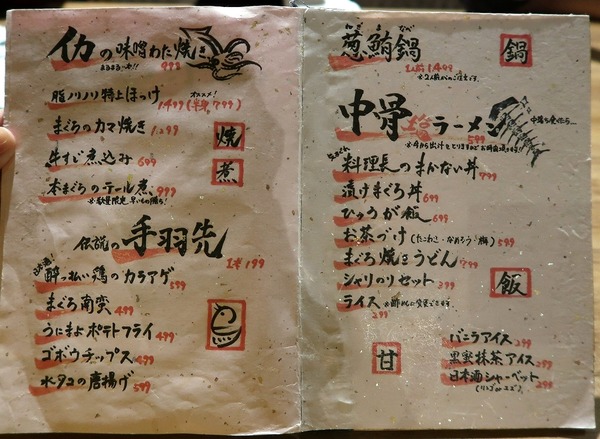 イカの味噌わた焼き
まるまる一杯!! 999
脂ノリノリ特上ほっけ
オススメ!
1499 (半身 799)
まぐろのカマ焼き 1299
牛すじ煮込み 699
本まぐろのテール煮 999
※数量限定、早いもの勝ち!
焼
煮
伝説の手羽先 1本 199
酔っ払い鶏のカラアゲ 599
まぐろ南蛮 499
うにまよポテトフライ 499
ゴボウチップス 499
水タコの唐揚げ 599
葱鮪鍋
1人前 1499
※2人前からのご注文です。
鍋
中骨塩ラーメン 599
中落ち食べたら…
料理長のまかない丼 799
漬けまぐろ丼 699
ひゅうが飯 699
お茶づけ (たこわさ・なめろう・梅) 599
まぐろ焼きうどん 799
シャリのリセット 399
ライス ※酢めしに変更できます。
299
飯
甘
バニラアイス 299
黒蜜抹茶アイス 299
日本酒シャーベット 299